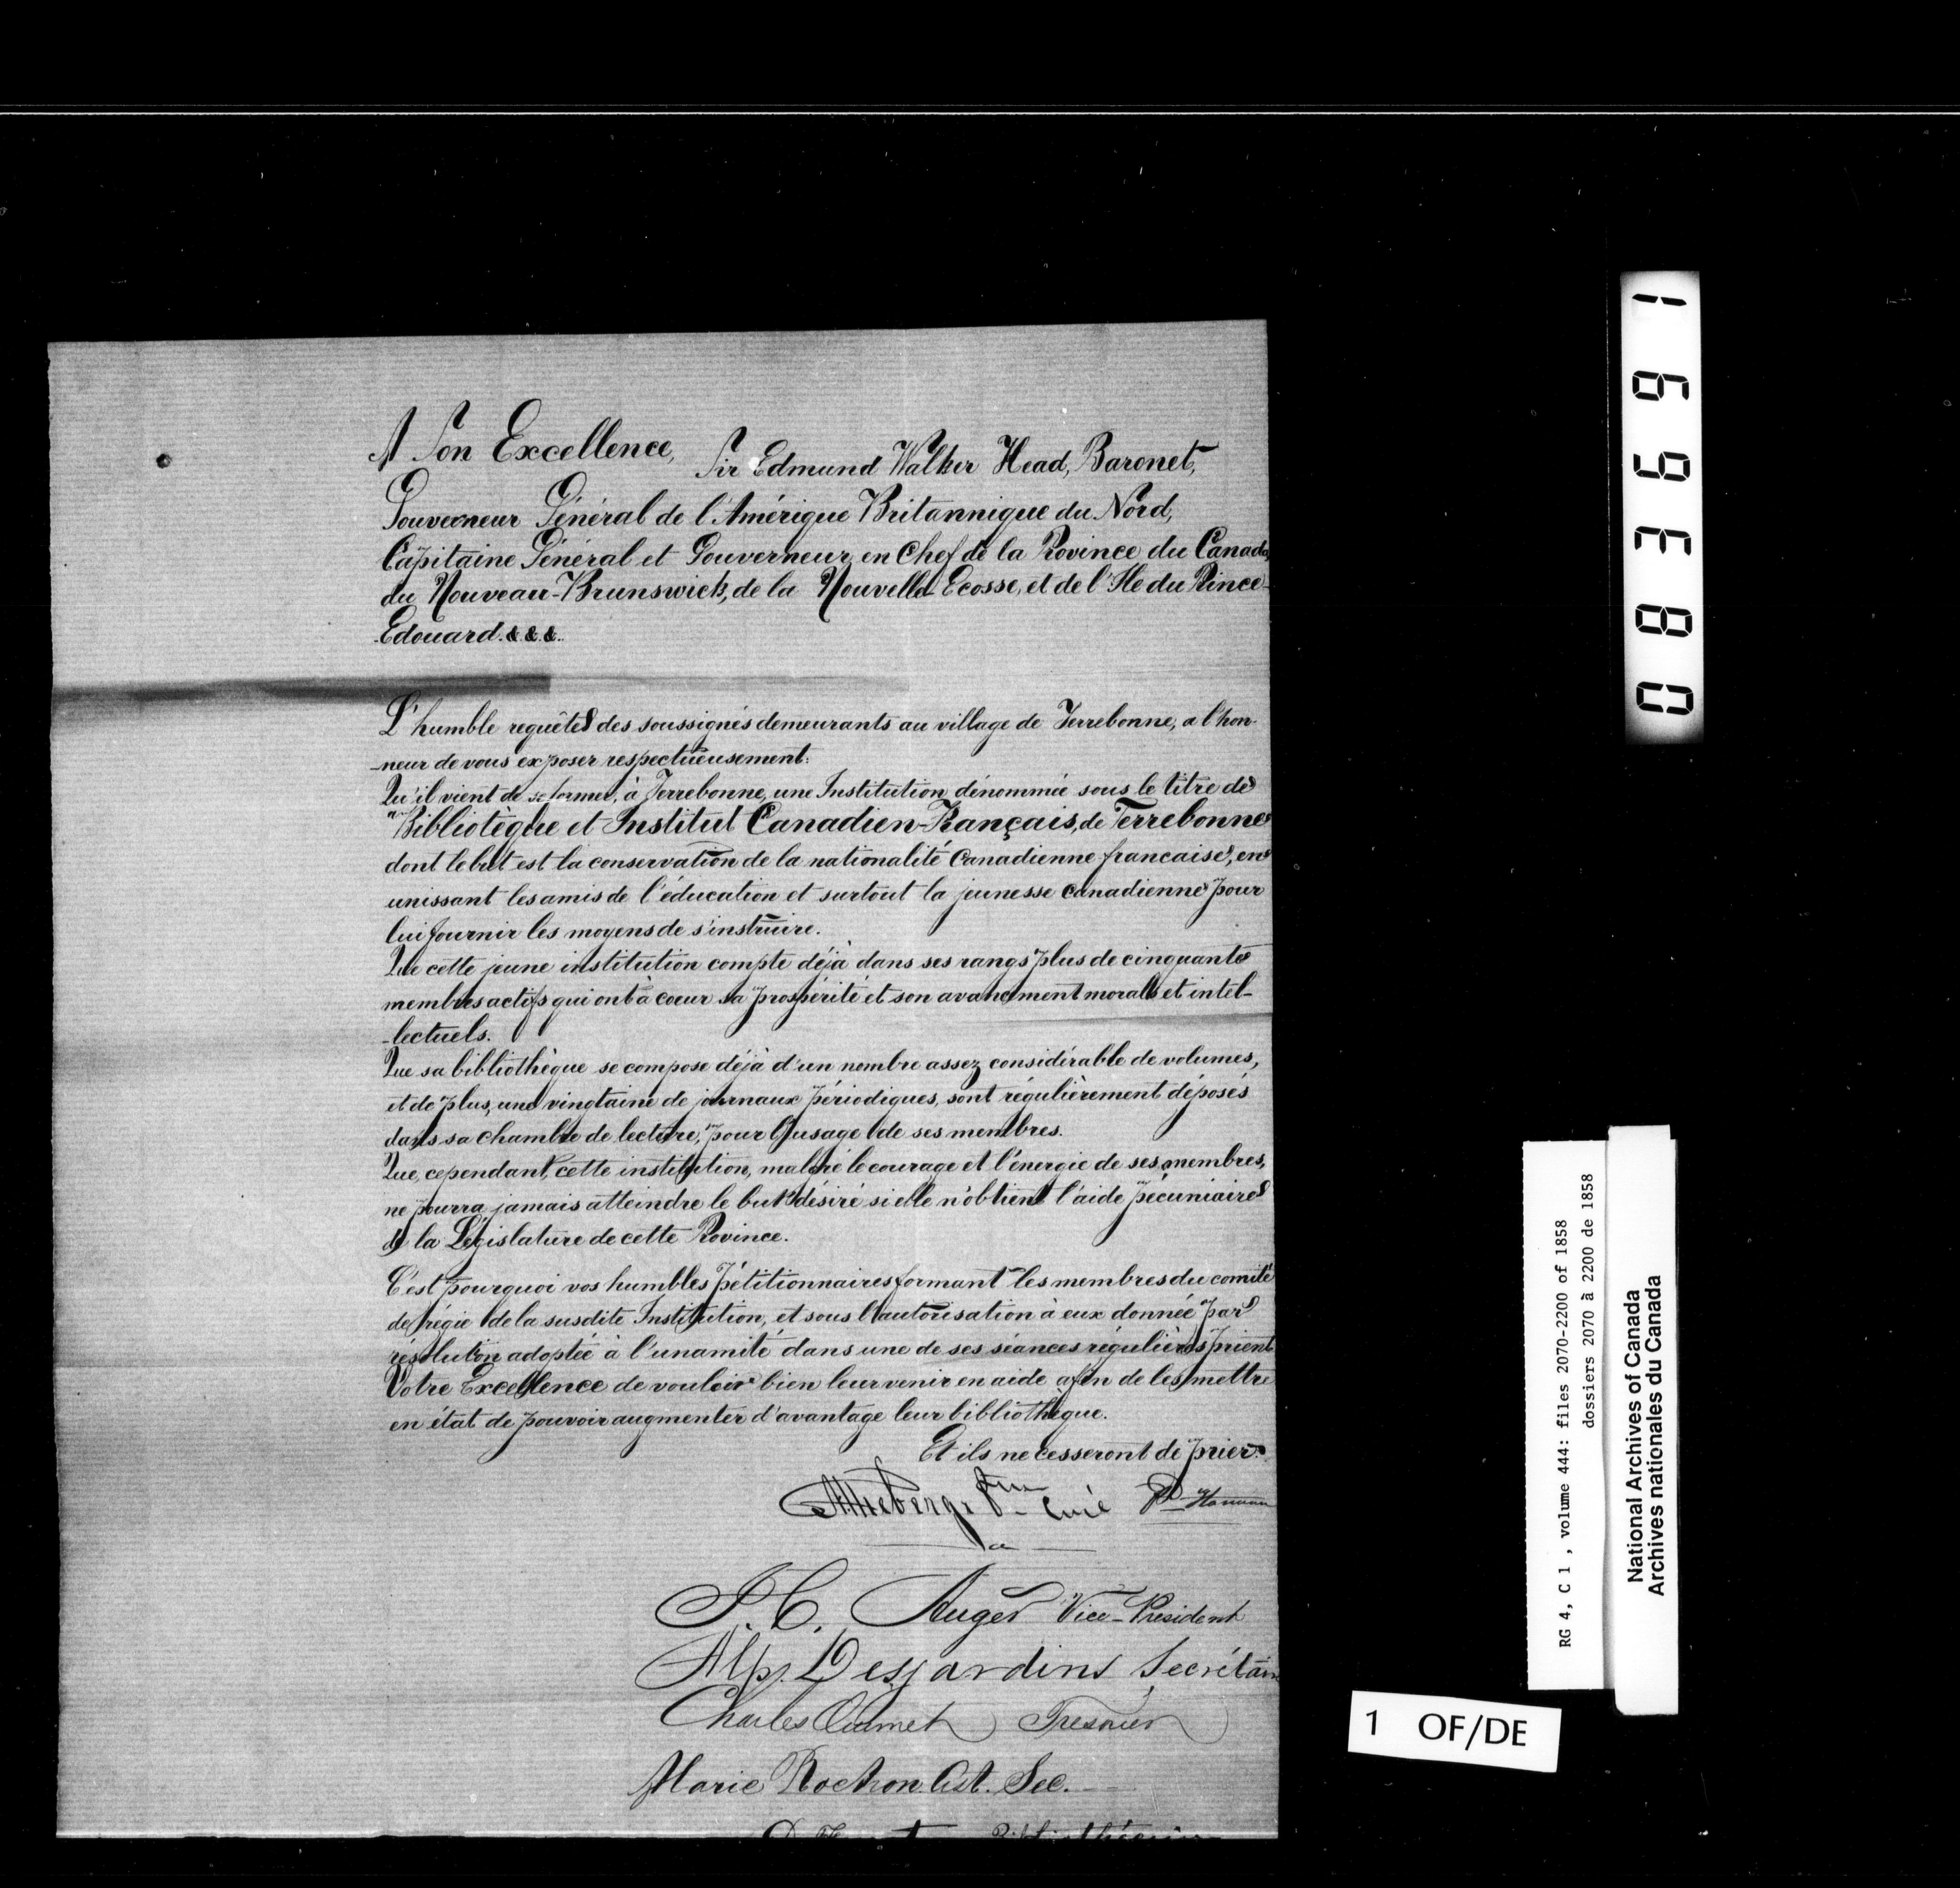 A Son Excellence, Sir Edmund Walker Head, Baronet,
Gouverneur Général de l'Amérique Britannique du Nord,
Capitaine Général et Gouverneur en Chef de la Province du Canada
du Nouveau-Brunswick, de la Nouvelle-Ecosse, et de l'Ile du Prince-
Edouard. & & &.
L'humble requête des soussignés demeurants au village de Terrebonne, a l'hon-
-neur de vous exposer respectueusement:
Qu'il vient de se former, à Terrebonne, une Institution dénommée sous le titre de
"Bibliotèque et Institut Canadien-Français, de Terrebonne
dont le but est la conservation de la nationalité Canadienne francaise, en
unissant les amis de l'éducation et surtout la jeunesse canadienne pour
lui fournir les moyens de s'instruire.
Que cette jeune institution compte déjà dans ses rangs plus de cinquante
membres actifs qui ont à coeur sa prospérité et son avancement morals et intel-
-lectuels.
Que sa bibliothèque se compose déjà d'un nombre assez considérable de volumes,
et de plus, une vingtaine de journaux périodiques, sont régulièrement déposés
dans sa chambre de lecture, pour l'usage de ses membres.
Que, cependant, cette institution, malgré le courage et l'énergie de ses membres,
ne pourra jamais atteindre le but désiré si elle n'obtient l'aide pécuniaire
de la Législature de cette Province.
C'est pourquoi vos humbles pétitionnaires formant les membres du comité
de régie de la susdite Institution, et sous l'autorisation à eux donnée par
résolution adoptée à l'unamité dans une de ses séances régulières prient
Votre Excellence de vouloir bien leur venir en aide afin de les mettre
en état de pouvoir augmenter d'avantage leur bibliothèque.
Et ils ne cesseront de prier.
Curé
J. C. Auger Vice-Président
Alp. Desjardins Secrétaire
Charles Ouimet Tresorier
Marie Rochon Ast. Sec.
Bibliothécaire
083691
RG 4, C 1 , volume 444: files 2070-2200 of 1858
dossiers 2070 à 2200 de 1858
National Archives of Canada
Archives nationales du Canada
1 OF/DE